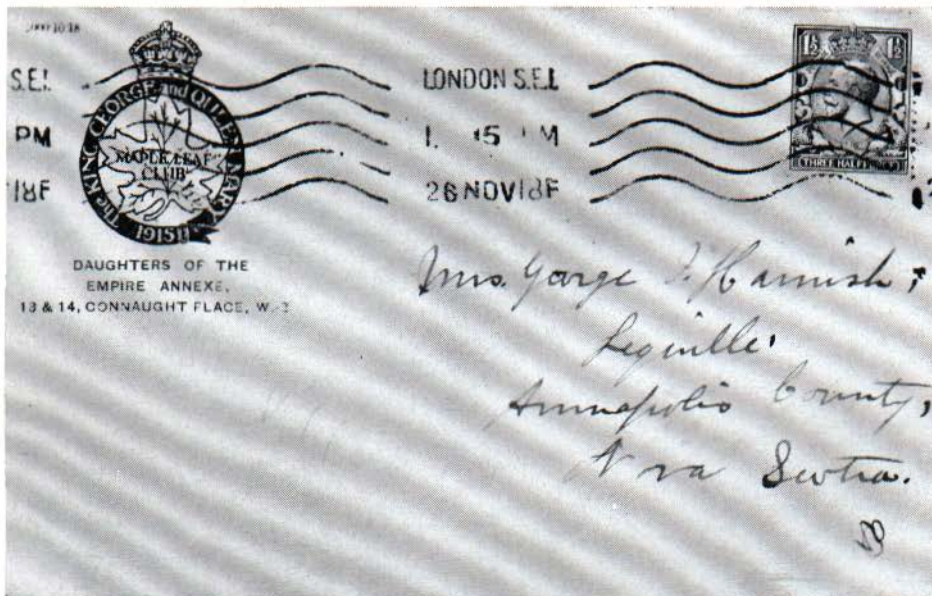 2000 10 18
S.E.1.
PM
18F
The KING GEORGE and QUEEN MARY
MAPLE LEAF
CLUB
DAUGHTERS OF THE
EMPIRE ANNEXE.
13 & 14, CONNAUGHT PLACE, W.2
LONDON S.E.1.
15 M
26 NOV 18F
1½ 1½
THREE HALF PENCE
Mrs. George Harnish,
Lequille.
Annapolis County,
Nova Scotia.